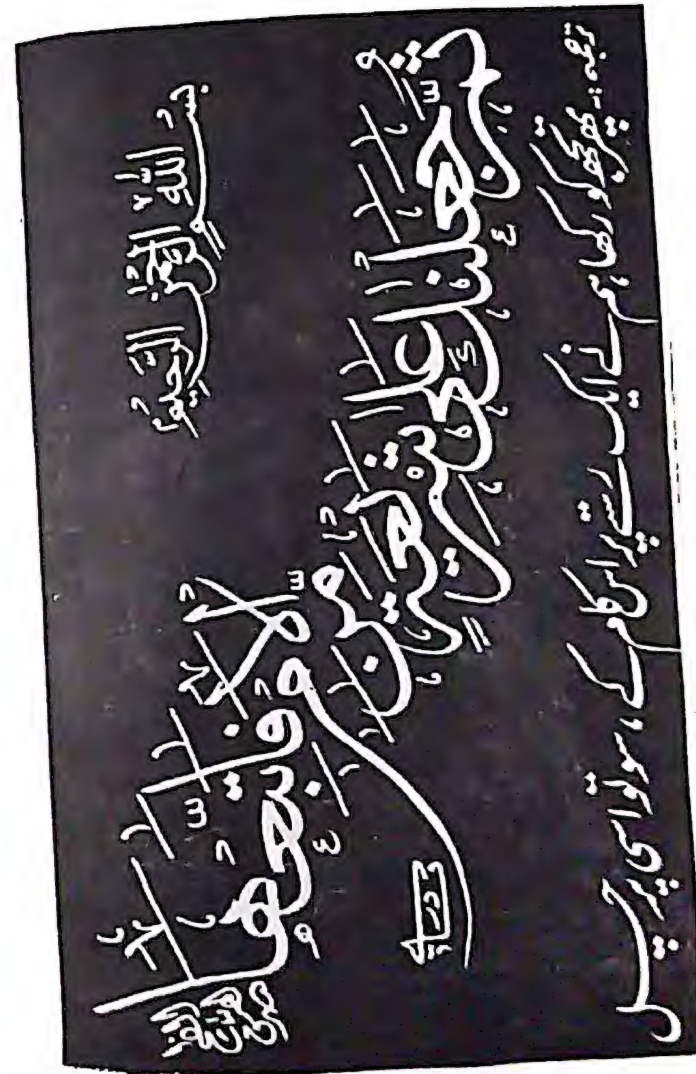 بِسْمِ اللّٰهِ الرَّحْمٰنِ الرَّحِيْمِ
ثُمَّ جَعَلْنٰكَ عَلٰى شَرِيْعَةٍ مِّنَ الْاَمْرِ فَاتَّبِعْهَا
ترجمہ:۔ پھر تجھ کو رکھا ہم نے ایک رستے پر اس کام کے، سو تو اسی پر چل